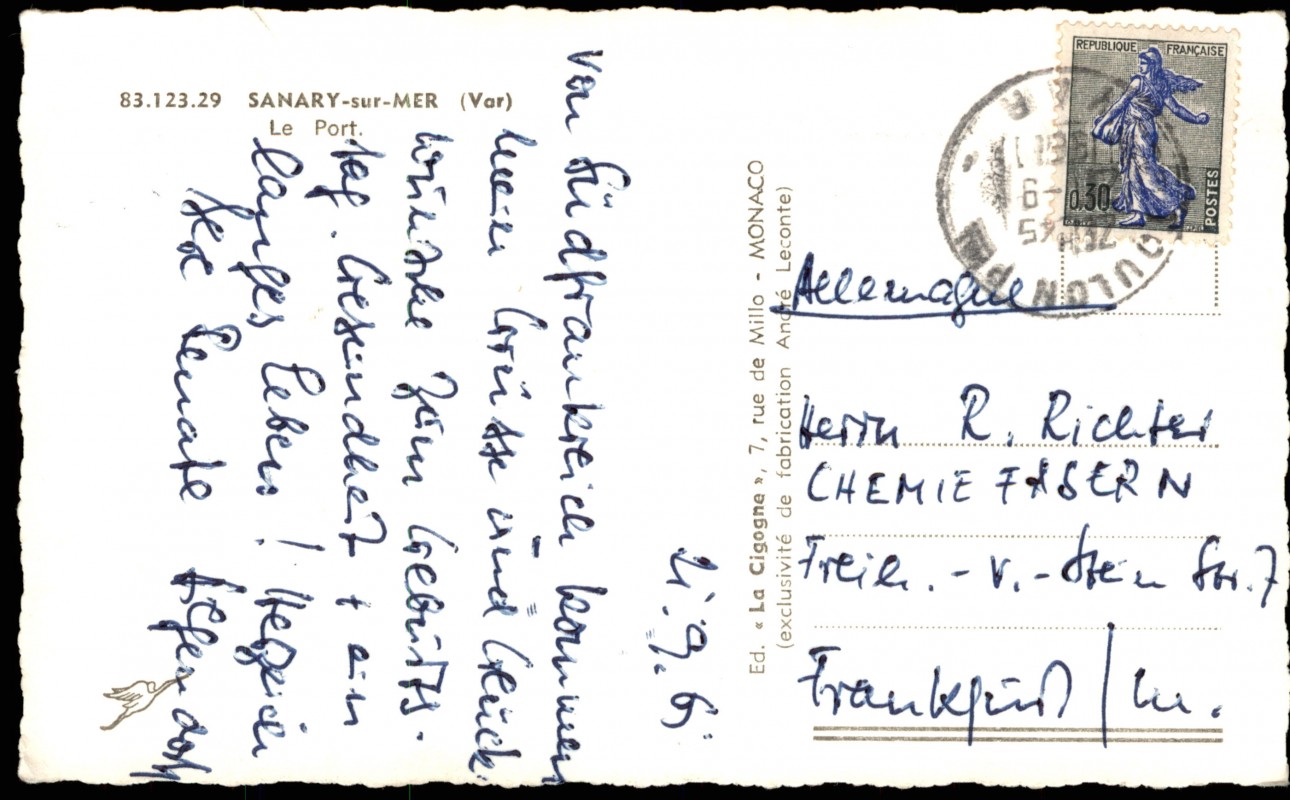 83.123.29 SANARY-sur-MER (Var)
Le Port.
21.9.61
Von Südfrankreich kommen
meine Grüsse und Glück-
wünsche zum Geburts-
tag. Gesundheit + ein
langes Leben! Herzlich
Ihre Renate
Ed. « La Cigogne », 7, rue de Millo - MONACO
(exclusivité de fabrication André Leconte)
REPUBLIQUE FRANÇAISE
0,30
POSTES
TOULON
VAR
Allemagne
Herrn R. Richter
CHEMIEFASERN
Freih.-v.-Stein Str. 7
Frankfurt/M.